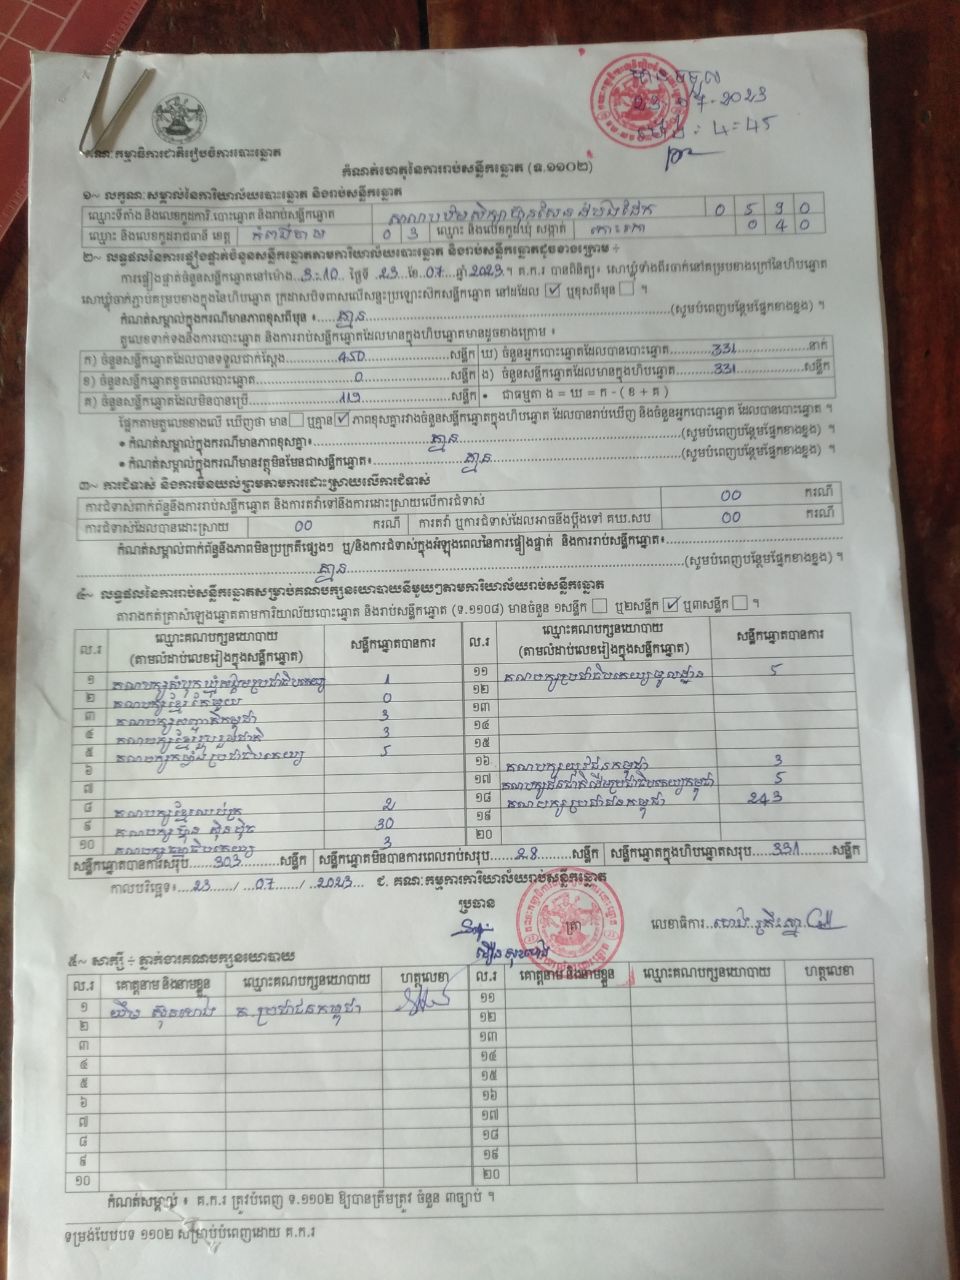 បានទទួល
23.07.2023
ម៉ោង: 4:45
គណៈកម្មាធិការជាតិរៀបចំការបោះឆ្នោត
កំណត់ហេតុនៃការរាប់សន្លឹកឆ្នោត (ទ.១១០២)
១~ លក្ខណៈសម្គាល់នៃការិយាល័យបោះឆ្នោត និងរាប់សន្លឹកឆ្នោត
ឈ្មោះទីតាំង និងលេខកូដការិ.បោះឆ្នោត និងរាប់សន្លឹកឆ្នោត 0 5 9 0
ឈ្មោះ និងលេខកូដរាជធានី ខេត្ត កំពង់ចាម 0 3 ឈ្មោះ និងលេខកូដឃុំ សង្កាត់ 0 4 0
២~ លទ្ធផលនៃការផ្ទៀងផ្ទាត់ចំនួនសន្លឹកឆ្នោតតាមការិយាល័យបោះឆ្នោត និងរាប់សន្លឹកឆ្នោតដូចខាងក្រោម ÷
ការផ្ទៀងផ្ទាត់ចំនួនសន្លឹកឆ្នោតនៅម៉ោង..3:10..ថ្ងៃទី..23..ខែ..07..ឆ្នាំ 2023។ គ.ក.រ បានពិនិត្យ៖ សោឃ្លុំទាំងពីរចាក់នៅគម្របខាងក្រៅនៃហិបឆ្នោត
សោឃ្លុំចាក់ភ្ជាប់គម្របខាងក្នុងនៃហិបឆ្នោត ក្រដាសបិទពាសលើសន្ទះប្រឡោះស៊កសន្លឹកឆ្នោត នៅដដែល ☑ ឬខុសពីមុន ☐ ។
កំណត់សម្គាល់ក្នុងករណីមានភាពខុសពីមុន ៖.....គ្មាន.....(សូមបំពេញបន្ថែមផ្នែកខាងខ្នង) ។
តួលេខទាក់ទងនឹងការបោះឆ្នោត និងការរាប់សន្លឹកឆ្នោតដែលមានក្នុងហិបឆ្នោតមានដូចខាងក្រោម ៖
ក) ចំនួនសន្លឹកឆ្នោតដែលបានទទួលជាក់ស្តែង.....450.....សន្លឹក ឃ) ចំនួនអ្នកបោះឆ្នោតដែលបានបោះឆ្នោត.....331.....នាក់
ខ) ចំនួនសន្លឹកឆ្នោតខូចពេលបោះឆ្នោត.....0.....សន្លឹក ង) ចំនួនសន្លឹកឆ្នោតដែលមានក្នុងហិបឆ្នោត.....331.....សន្លឹក
គ) ចំនួនសន្លឹកឆ្នោតដែលមិនបានប្រើ.....119.....សន្លឹក • ជាធម្មតា ង = ឃ = ក - ( ខ + គ )
ផ្អែកតាមតួលេខខាងលើ ឃើញថា មាន ☐ ឬគ្មាន ☑ ភាពខុសគ្នារវាងចំនួនសន្លឹកឆ្នោតក្នុងហិបឆ្នោត ដែលបានរាប់ឃើញ និងចំនួនអ្នកបោះឆ្នោត ដែលបានបោះឆ្នោត ។
• កំណត់សម្គាល់ក្នុងករណីមានភាពខុសគ្នា៖.....គ្មាន.....(សូមបំពេញបន្ថែមផ្នែកខាងខ្នង) ។
• កំណត់សម្គាល់ក្នុងករណីមានវត្ថុមិនមែនជាសន្លឹកឆ្នោត៖.....គ្មាន.....(សូមបំពេញបន្ថែមផ្នែកខាងខ្នង) ។
៣~ ការជំទាស់ និងការមិនយល់ព្រមតាមការដោះស្រាយលើការជំទាស់
ការជំទាស់ពាក់ព័ន្ធនឹងការរាប់សន្លឹកឆ្នោត និងការតវ៉ាទៅនឹងការដោះស្រាយលើការជំទាស់ 00 ករណី
ការជំទាស់ដែលបានដោះស្រាយ 00 ករណី ការតវ៉ា ឬការជំទាស់ដែលអាចនឹងប្តឹងទៅ គឃ.សប 00 ករណី
កំណត់សម្គាល់ពាក់ព័ន្ធនឹងភាពមិនប្រក្រតីផ្សេងៗ ឬ/និងការជំទាស់ក្នុងអំឡុងពេលនៃការផ្ទៀងផ្ទាត់ និងការរាប់សន្លឹកឆ្នោត៖
.....គ្មាន.....(សូមបំពេញបន្ថែមផ្នែកខាងខ្នង) ។
៤~ លទ្ធផលនៃការរាប់សន្លឹកឆ្នោតសម្រាប់គណបក្សនយោបាយនីមួយៗតាមការិយាល័យរាប់សន្លឹកឆ្នោត
តារាងកត់ត្រាសំឡេងឆ្នោតតាមការិយាល័យបោះឆ្នោត និងរាប់សន្លឹកឆ្នោត (ទ.១១០៨) មានចំនួន ១សន្លឹក ☐ ឬ២សន្លឹក ☑ ឬ៣សន្លឹក ☐ ។
ល.រ ឈ្មោះគណបក្សនយោបាយ សន្លឹកឆ្នោតបានការ ល.រ ឈ្មោះគណបក្សនយោបាយ សន្លឹកឆ្នោតបានការ
(តាមលំដាប់លេខរៀងក្នុងសន្លឹកឆ្នោត) (តាមលំដាប់លេខរៀងក្នុងសន្លឹកឆ្នោត)
១ គណបក្សសំបុកឃ្មុំសង្គមប្រជាធិបតេយ្យ 1 ១១ គណបក្សប្រជាធិបតេយ្យមូលដ្ឋាន 5
២ គណបក្សខ្មែរតែមួយ 0 ១២
៣ គណបក្សសញ្ជាតិកម្ពុជា 3 ១៣
៤ គណបក្សខ្មែររួបរួមជាតិ 3 ១៤
៥ គណបក្សកម្លាំងប្រជាធិបតេយ្យ 5 ១៥
៦ ១៦ គណបក្សយុវជនកម្ពុជា 3
៧ ១៧ គណបក្សជនជាតិដើមប្រជាធិបតេយ្យកម្ពុជា 5
៨ គណបក្សខ្មែរឈប់ក្រ 2 ១៨ គណបក្សប្រជាជនកម្ពុជា 243
៩ គណបក្សហ៊្វុនស៊ិនប៉ិច 30 ១៩
១០ គណបក្សធម្មាធិបតេយ្យ 3 ២០
សន្លឹកឆ្នោតបានការសរុប.....303.....សន្លឹក សន្លឹកឆ្នោតមិនបានការពេលរាប់សរុប.....28.....សន្លឹក សន្លឹកឆ្នោតក្នុងហិបឆ្នោតសរុប.....331.....សន្លឹក
កាលបរិច្ឆេទ៖...23...../...07....../...2023... ជ. គណៈកម្មការការិយាល័យរាប់សន្លឹកឆ្នោត
ប្រធាន
ត្រា
លេខាធិការ
៥~ សាក្សី ÷ ភ្នាក់ងារគណបក្សនយោបាយ
ល.រ គោត្តនាម និងនាមខ្លួន ឈ្មោះគណបក្សនយោបាយ ហត្ថលេខា ល.រ គោត្តនាម និងនាមខ្លួន ឈ្មោះគណបក្សនយោបាយ ហត្ថលេខា
១ គ.ប្រជាជនកម្ពុជា ១១
២ ១២
៣ ១៣
៤ ១៤
៥ ១៥
៦ ១៦
៧ ១៧
៨ ១៨
៩ ១៩
១០ ២០
កំណត់សម្គាល់ ៖ គ.ក.រ ត្រូវបំពេញ ទ.១១០២ ឱ្យបានត្រឹមត្រូវ ចំនួន ៣ច្បាប់ ។
ទម្រង់បែបបទ ១១០២ សម្រាប់បំពេញដោយ គ.ក.រ